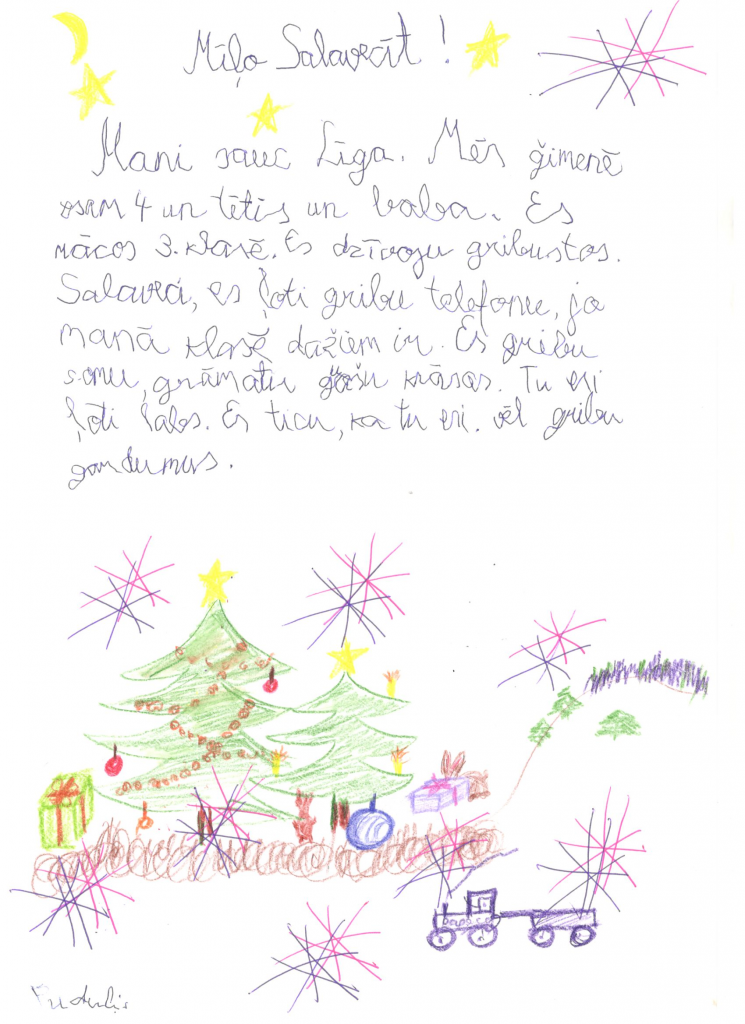 Mīļo Salavecīt!
Mani sauc Līga. Mēs ģimenē
esam 4 un tētis un baba. Es
mācos 3. klasē. Es dzīvoju gribustos.
Salavecī, es ļoti gribu telefonu, jo
manā klasē dažiem ir. Es gribu
somu, grāmatu košu krāsas. Tu esi
ļoti labs. Es ticu, ka tu esi. vēl gribu
gardumus.